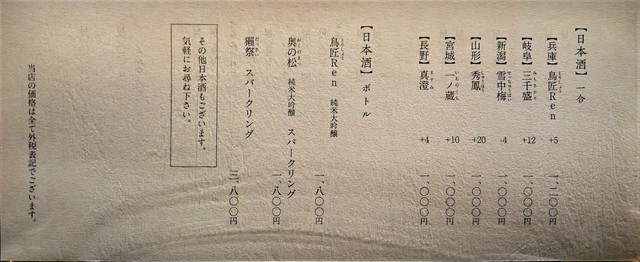 【日本酒】 一合
【兵庫】 鳥匠Ren +5 一、二〇〇円
【岐阜】 三千盛 +12 一、〇〇〇円
【新潟】 雪中梅 -4 一、〇〇〇円
【山形】 秀鳳 +20 一、〇〇〇円
【宮城】 一ノ蔵 +10 一、〇〇〇円
【長野】 真澄 +4 一、〇〇〇円
【日本酒】 ボトル
鳥匠Ren 純米大吟醸 一、八〇〇円
奥の松 純米大吟醸 スパークリング 一、八〇〇円
獺祭 スパークリング 三、八〇〇円
その他日本酒もございます。
気軽にお尋ね下さい。
当店の価格は全て外税表記でございます。